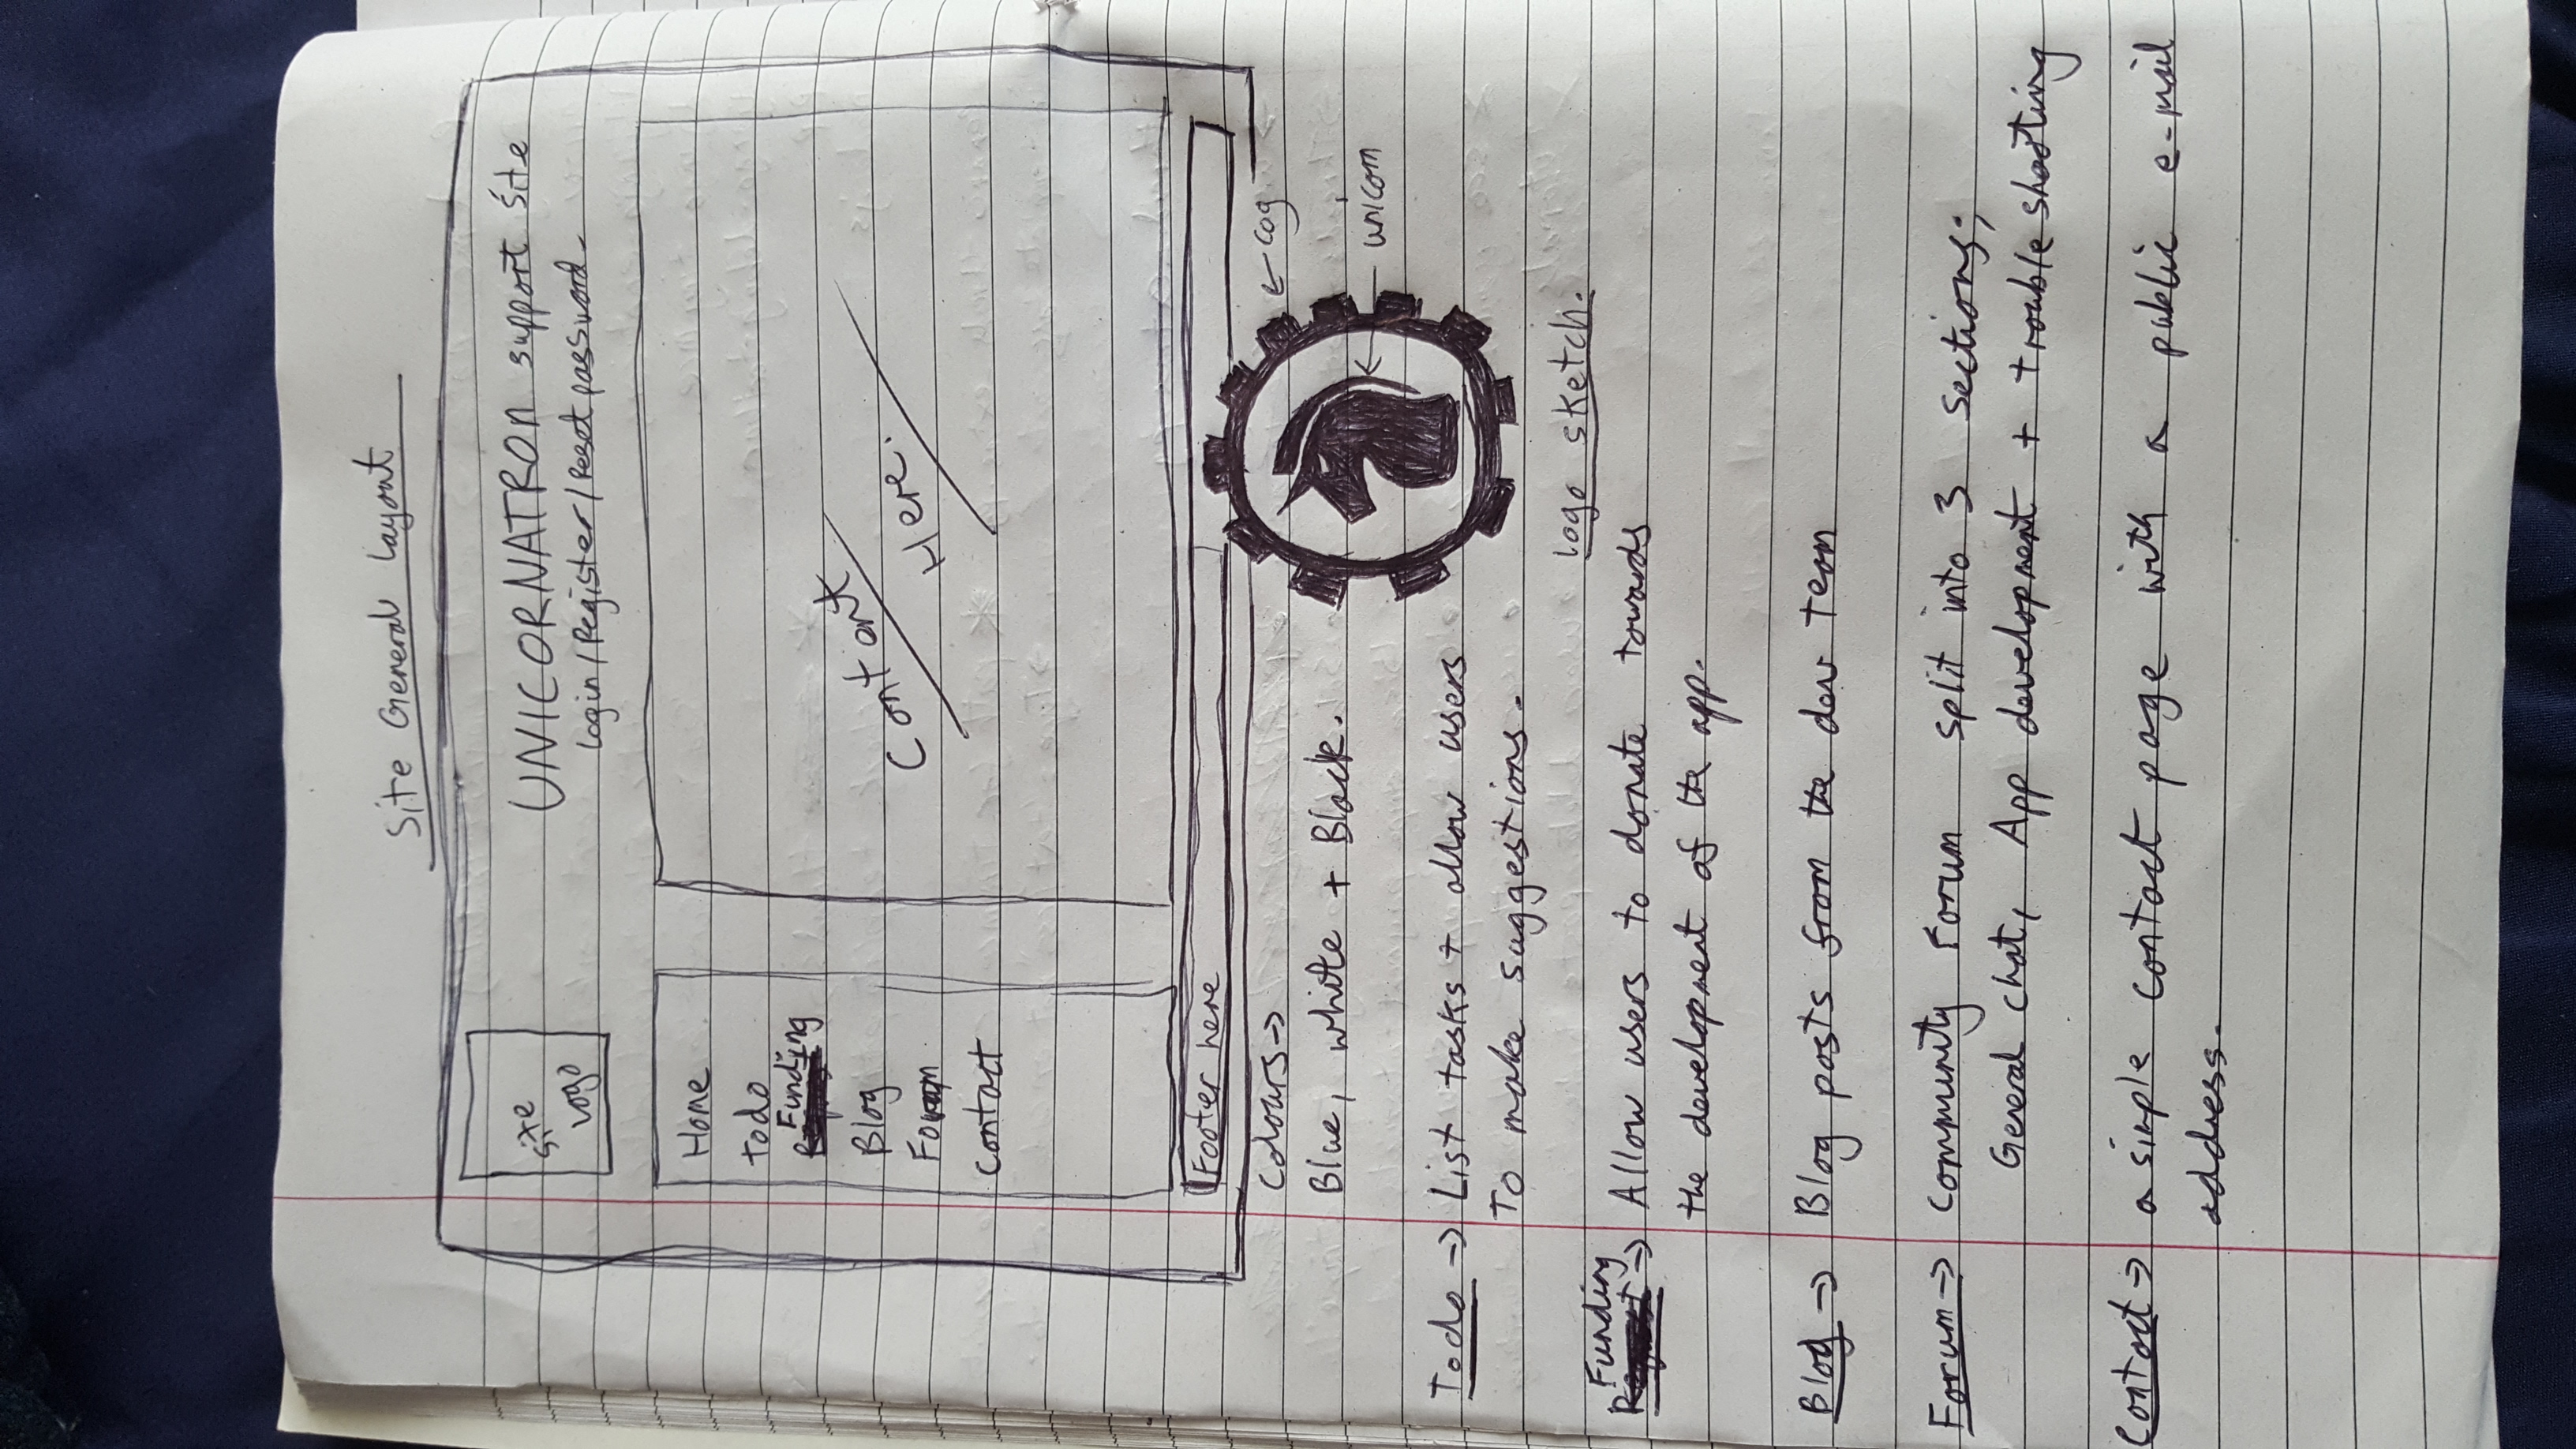 Site General Layout
site
logo
UNICORNATRON support site
Login / Register / Reset password.
Home
todo
Funding
Blog
Forum
Contact
Content
Here.
Footer here
Colours→
Blue, white + Black.
← cog
← unicorn
logo sketch.
Todo → List tasks + allow users
To make suggestions.
Funding
→ Allow users to donate towards
the development of the app.
Blog → Blog posts from the dev team
Forum → Community Forum split into 3 sections;
General chat, App development + trouble shooting
Contact → a simple contact page with a public e-mail
address.